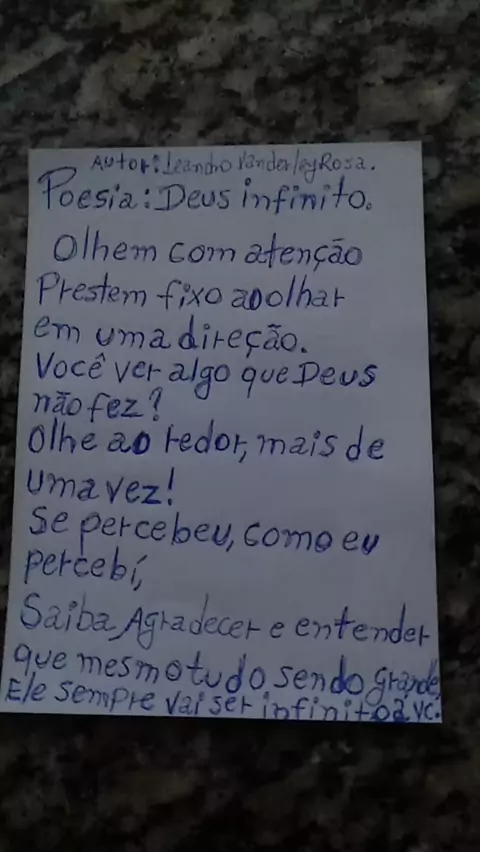 Autor: Leandro Vanderley Rosa.
Poesia: Deus infinito.
Olhem com atenção
Prestem fixo ao olhar
em uma direção.
Você ver algo que Deus
não fez?
Olhe ao redor, mais de
uma vez!
Se percebeu, como eu
percebí,
Saiba Agradecer e entender
que mesmo tudo sendo grande,
Ele sempre vai ser infinito a vc.